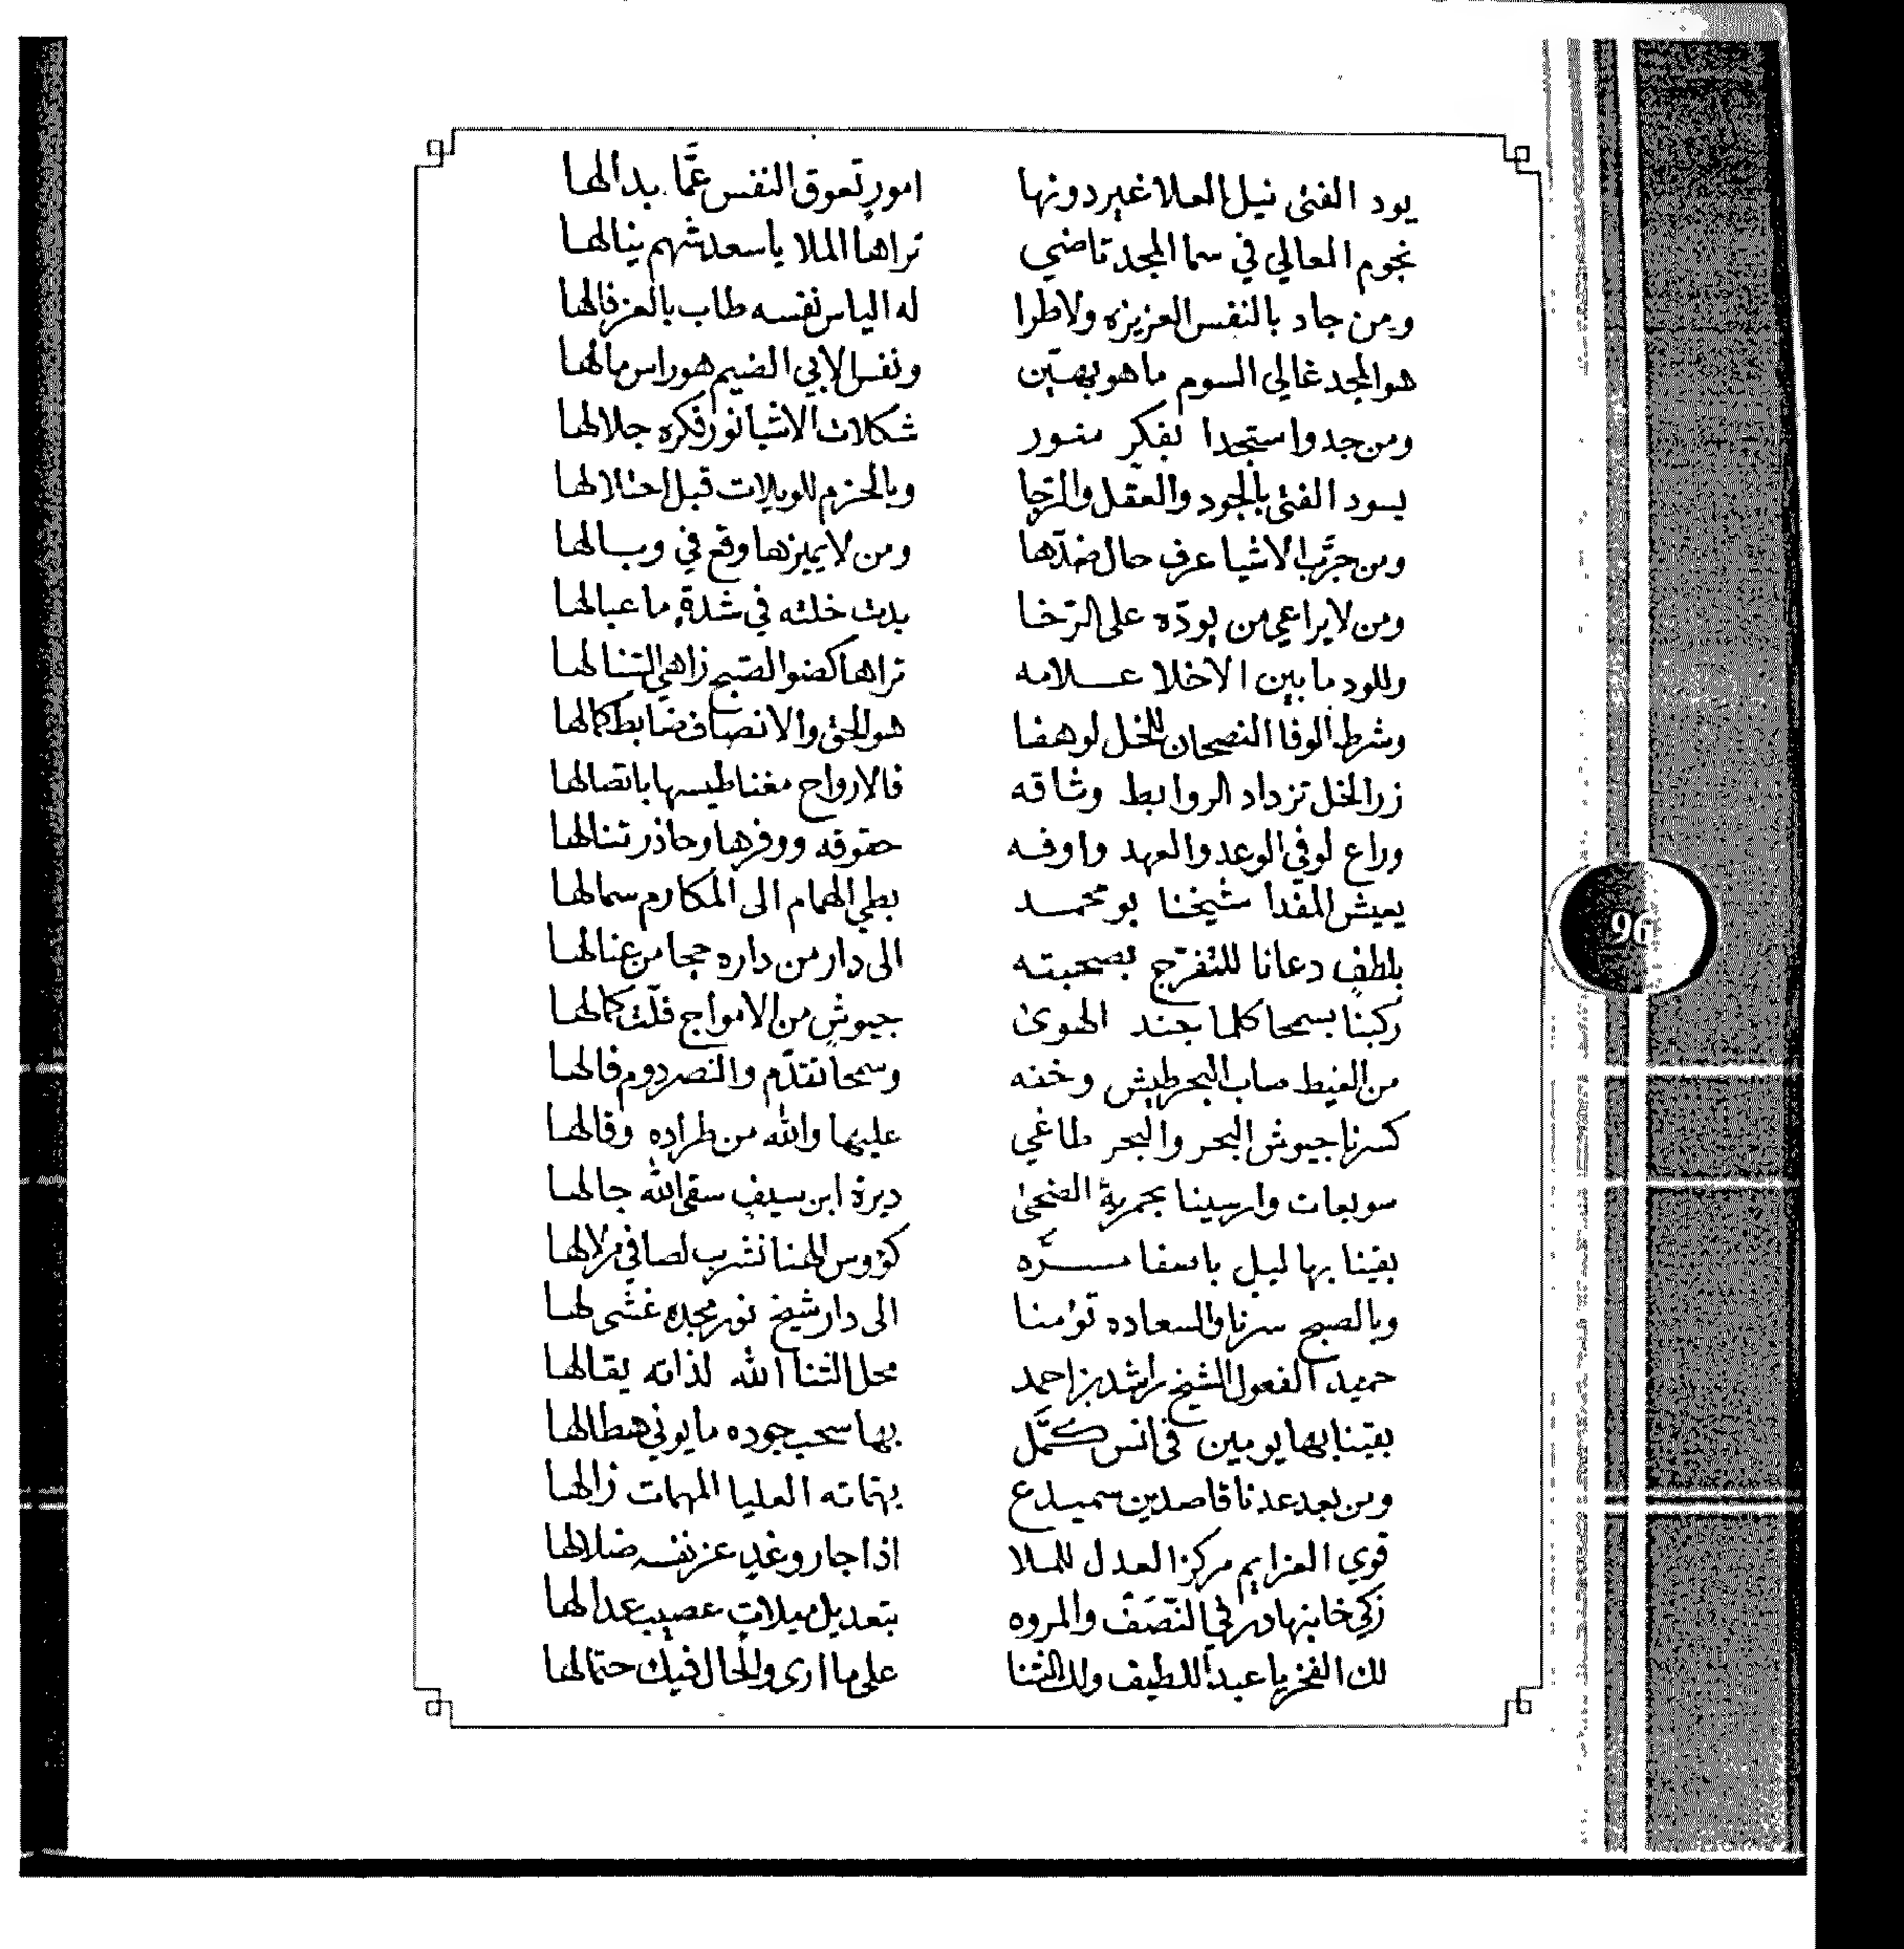 يود الفتى نيل العلا غير دونها امور تعوق النفس عمَّا بدالها
نجوم المعالي في سما المجد تاضي تراها الملا ياسعد شهم ينالها
ومن جاد بالنفس العزيزه ولاطرا له الياس نفسه طاب بالعز فالها
هو المجد غالي السوم ماهو بهيّن ونفس الابي الضيم هو راس مالها
ومن جد واستجدا بفكر منور شكلات الاشيا نور فكره جلالها
يسود الفتى بالجود والعقل والرّجا وبالحزم للويلات قبل احتلالها
ومن جرَّب الاشيا عرف حال ضدّها ومن لا يميزها وقع في وبالها
ومن لا يراعي من يودّه على الرّخا بدت خلته في شدةٍ ما عبالها
وللود ما بين الاخلا علامه تراها كضو الصّبح زاهي التنالها
وشرط الوفا النصحان للخل لو هفا هو الحق والانصاف ضابط كمالها
زر الخل تزداد الروابط وثاقه فالارواح مغناطيسها باتصالها
وراع لوفي الوعد والعهد واوفه حقوقه ووفرها وحاذر تنالها
يعيش المفدّا شيخنا بو محمد بطي الهمام الى المكارم سمالها
بلطفٍ دعانا للتفرّج بصحبته الى دار من داره حجا من عنالها
ركبنا بسمحا كلما جند الهوىٰ جيوشٍ من الامواج فلّت كمالها
من الغيط صاب البحر طيش وخفه وسمحا تقدّم والنصر دوم فالها
كسرنا جيوش البحر والبحر طاغي عليها والله من طراده وقالها
سويعات وارسينا بحمرية الضحىٰ ديرة ابن سيف سقى الله جالها
بقينا بها ليل باصفا مسرّه كؤوس الهنا نشرب لصافي زلالها
وبالصبح سرنا والسعاده تؤمنا الى دار شيخ نور مجده غشى لها
حميد الفعول الشيخ راشد بن احمد محل الثنا الله لذاته يقالها
بقينا بها يومين في انس كمَّل بها سحب جوده ما يوني هطالها
ومن بعد عدنا قاصدين سميدع بهماته العليا المهمات زالها
قوي العزايم مركز العدل للملا اذا جار وغدٍ عز نفسه ضلالها
زكي خان بهادر في النّصَف والمروه بتعديل ميلاتٍ عصيب عدالها
لك الفخر يا عبد اللطيف ولك الثنا على ما ارى والحال فيك حتمالها
96